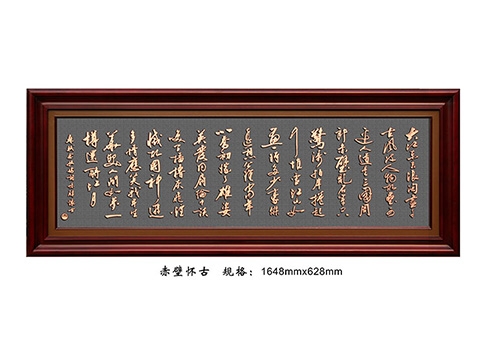 大江东去浪淘尽千
古风流人物故垒西
边人道是三国周
郎赤壁乱石穿空
惊涛拍岸卷起
千堆雪江山如
画一时多少豪杰
遥想公瑾当年
小乔初嫁了雄姿
英发羽扇纶巾谈
笑间樯橹灰飞烟
灭故国神游
多情应笑我早生
华发人间如梦一
樽还酹江月
赤壁怀古 规格：1648mmx628mm